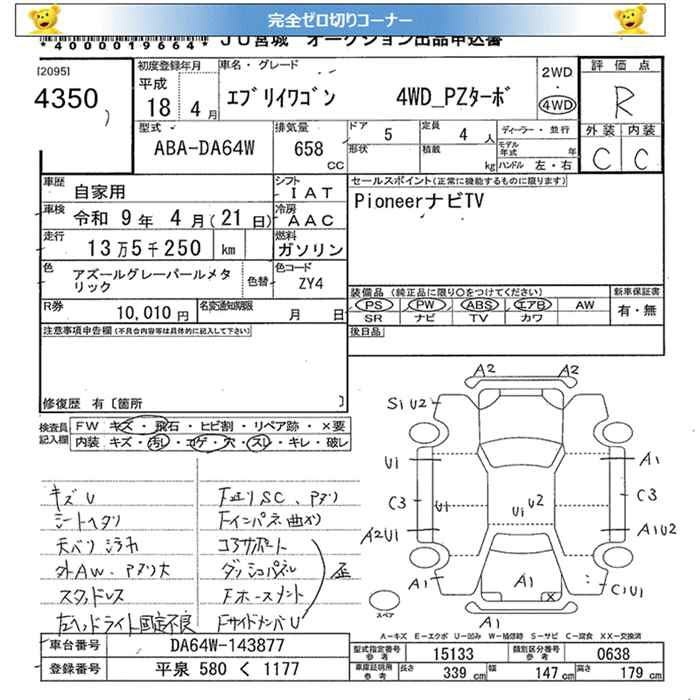 完全ゼロ切りコーナー
*4000019664* JU宮城 オークション出品申込書
[20951
4350
)
初度登録年月
平成
18 4 月
車名・グレード
エブリイワゴン 4WD_PZターボ
2WD
4WD
評価点
R
外装 内装
C C
型式
ABA-DA64W
排気量
658
CC
ドア 5
形状
定員 4 人
積載 kg
ディーラー・並行
モデル年式 年
ハンドル 左・右
車歴
自家用
シフト
IAT
セールスポイント(正常に機能するものに限ります)
PioneerナビTV
車検
令和 9 年 4 月(21 日)
冷房
AAC
走行
13 万 5 千 250 km
燃料
ガソリン
色
アズールグレーパールメタリック
色替
色コード
ZY4
装備品 (純正品に限り○をつけてください)
PS PW ABS エアB AW
SR ナビ TV カワ
新車保証書
有・無
R券
10,010 円
名変通知期限
月 日
後日品
注意事項申告欄(不具合内容等は具体的に記入して下さい)
修復歴 有〔箇所 〕
検査員記入欄
FW キズ・飛石・ヒビ割・リペア跡・×要
内装 キズ・汚レ・コゲ・穴・スレ・キレ・破レ
A2 A2
SiU2
U1 A1
C3 U1 U1 U2 C3
A2U1 A1U2
A1 A1 X C1U1
A1
スペア
キズU
シートヘタリ
天バリシラカ
外AW、アブリ大
スタッドレス
左ヘッドライト固定不良
F廻りSC、アブリ
Fインパネ曲がり
コアサポート
ダッシュパネル
Fホースメント
FサイドメンバU
歪
A―キズ E―エクボ U―凹み W―補修跡 S―サビ C―腐食 XX―交換済
車台番号
DA64W-143877
登録番号
平泉 580 く 1177
型式指定番号
参考
15133
類別区分番号
参考
0638
車庫証明用
参考
長さ
339 cm
幅
147 cm
高さ
179 cm